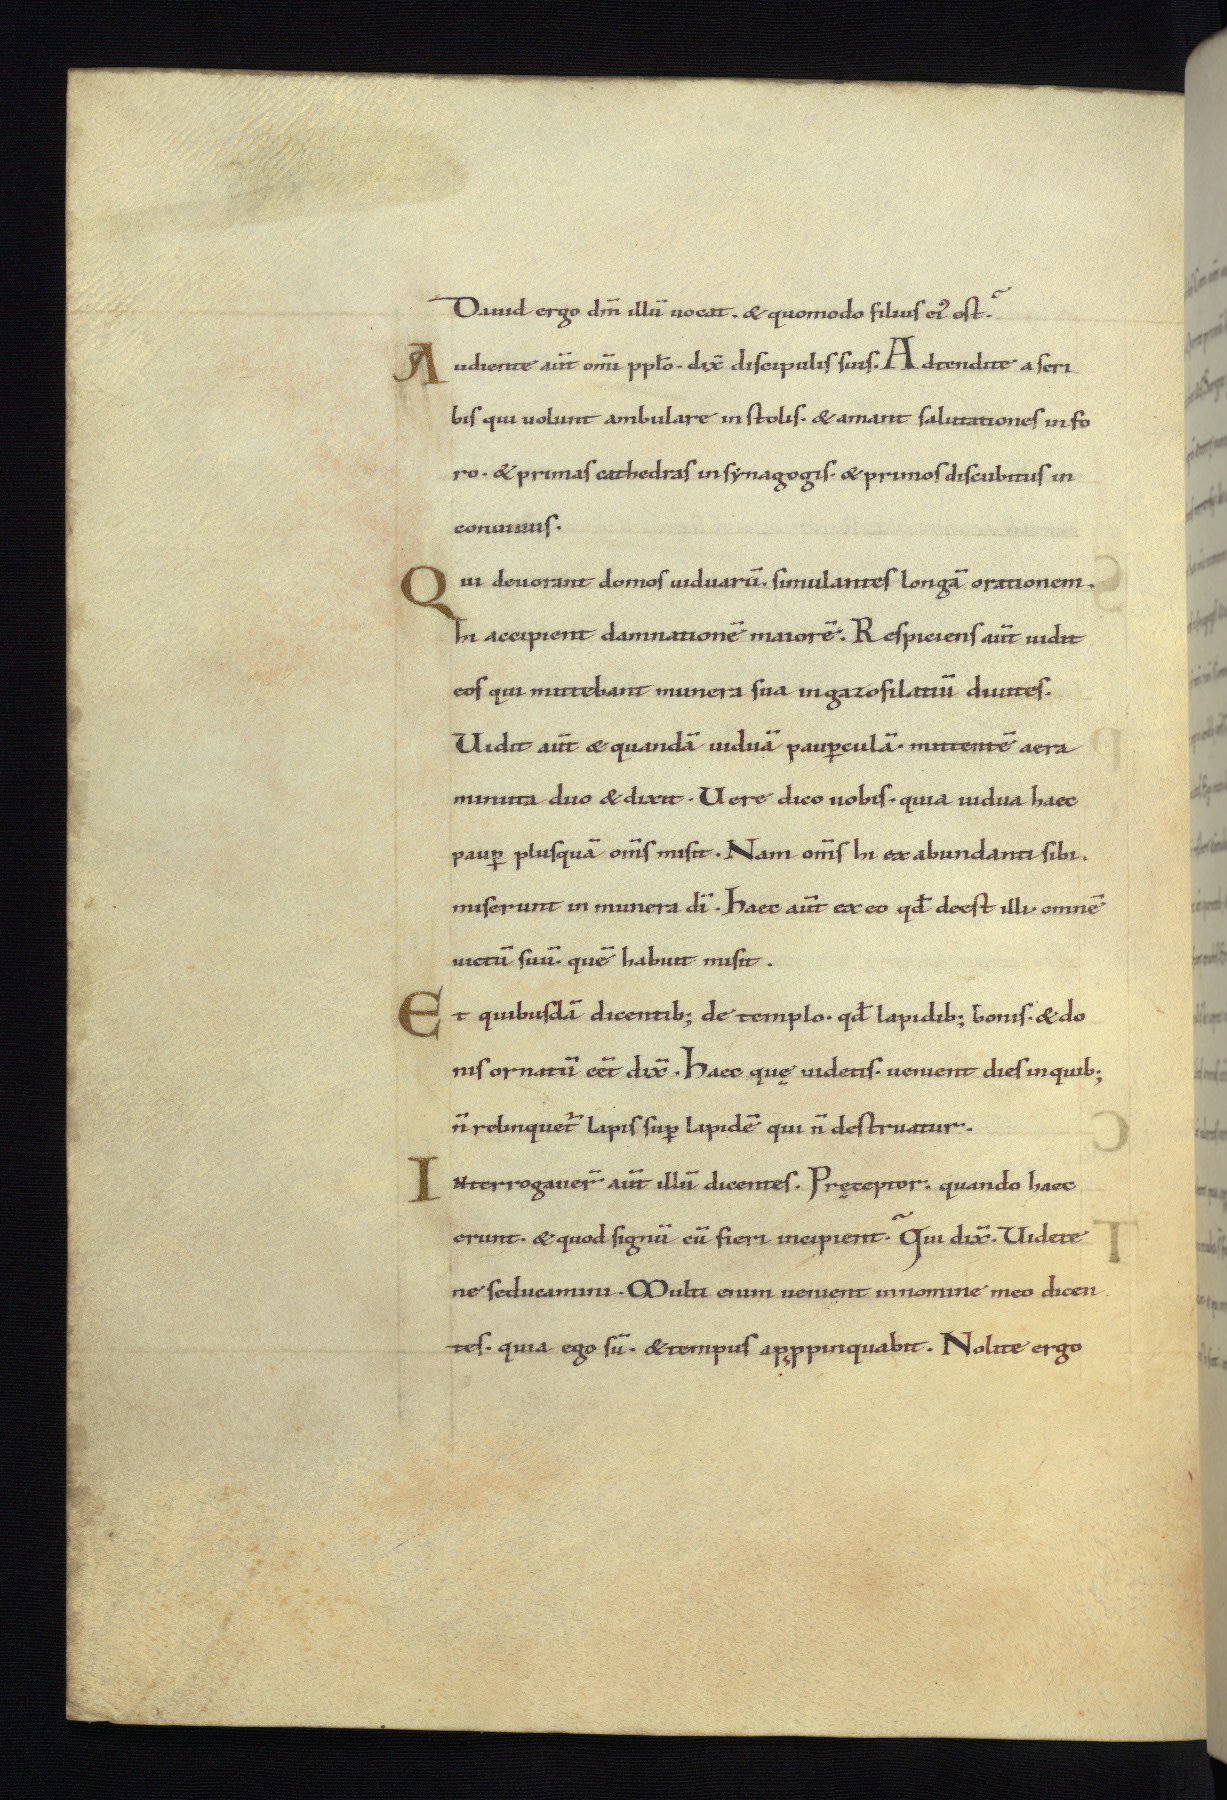 Dauid ergo dn̄i illū uocat. & quomodo filius ei᾽ est.
Audiente aut̄ om̄i pp̄lo. dix̄ discipulis suis. Adtendite a scri
bis qui uolunt ambulare in stolis. & amant salutationes in fo
ro. & primas cathedras in synagogis. & primos discubitus in
conuiuiis.
Qui deuorant domos uiduarū. simulantes longā orationem.
hi accipient damnationē maiorē. Respiciens aut̄ uidit
eos qui mittebant munera sua in gazofilatiū diuites.
Uidit aut̄ & quandā uiduā paup̄culā. mittentē aera
minuta duo & dixit. Uere dico uobis. quia uidua haec
paup̄ plusquā om̄s misit. Nam om̄s hi ex abundanti sibi.
miserunt in munera dī. haec aut̄ ex eo qd̄ deest illi. omnē
uictū suū. quē habuit misit.
Et quibusdā dicentib; de templo. qd̄ lapidib; bonis. & do
nis ornatū eēt dix̄. haec quę uidetis. uenient dies in quib;
n̄ relinquet᾽ lapis sup̄ lapidē qui n̄ destruatur.
Interrogauer̄ aut̄ illū dicentes. Pręceptor. quando haec
erunt. & quod signū cū fieri incipient. Qui dix̄. Uidete
ne seducamini. Multi enim uenient in nomine meo dicen
tes. quia ego sū. & tempus apꝓpinquabit. Nolite ergo